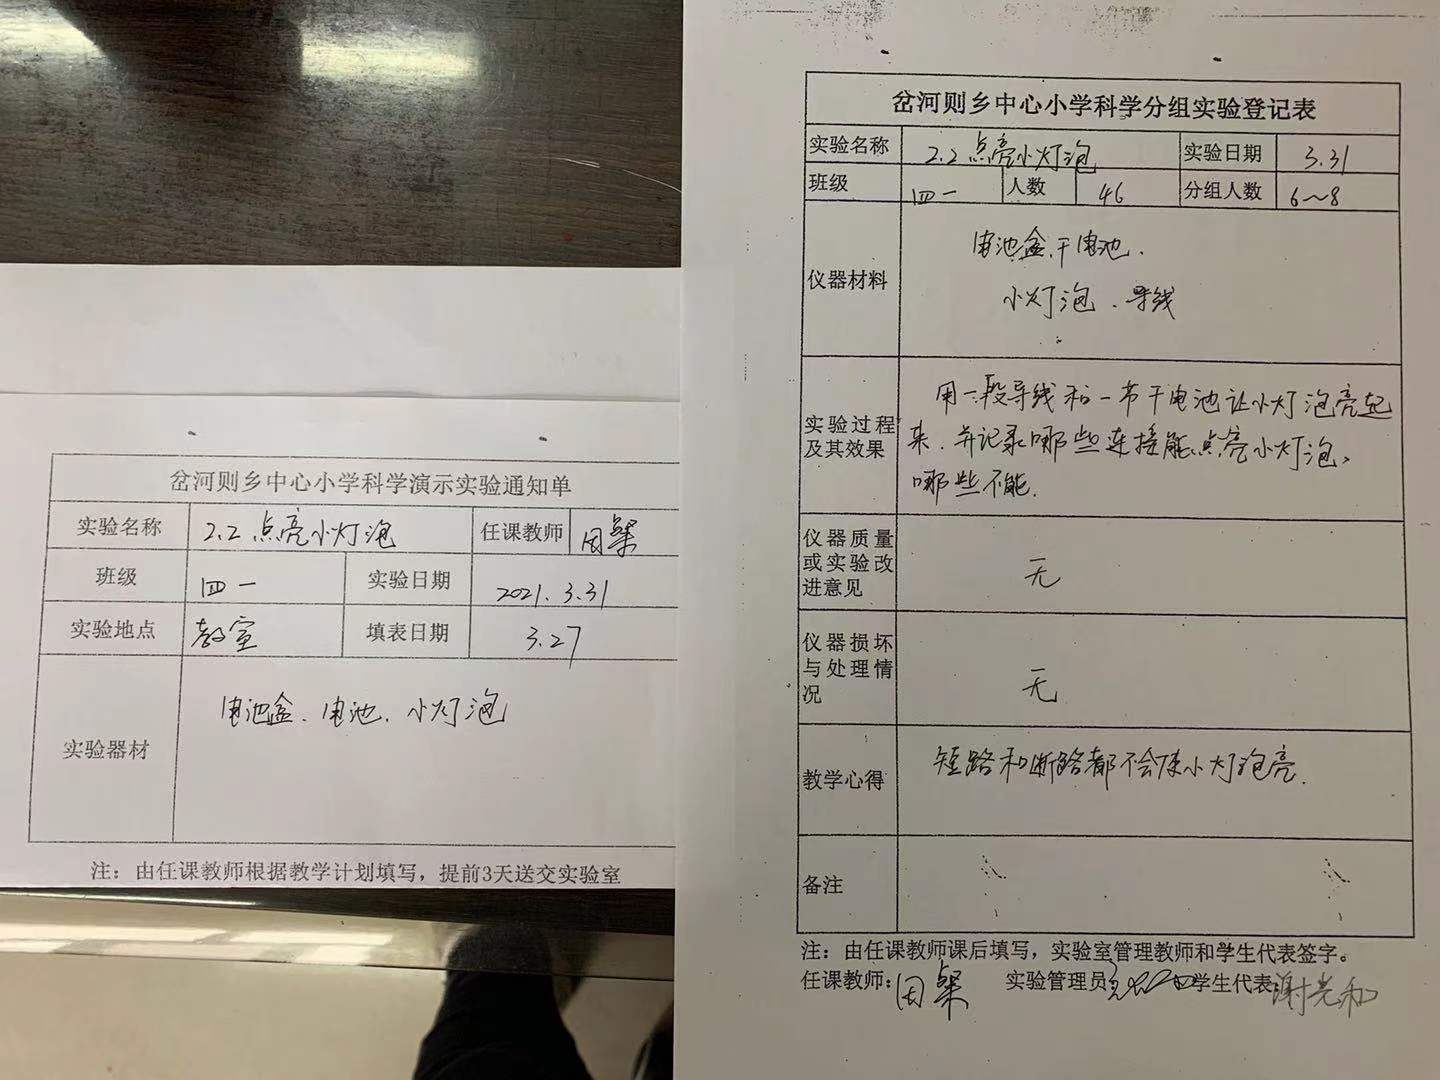 岔河则乡中心小学科学演示实验通知单
实验名称 2.2 点亮小灯泡 任课教师
班级 四一 实验日期 2021.3.31
实验地点 教室 填表日期 3.27
实验器材 电池盒、电池、小灯泡
注：由任课教师根据教学计划填写，提前3天送交实验室
岔河则乡中心小学科学分组实验登记表
实验名称 2.2 点亮小灯泡 实验日期 3.31
班级 四一 人数 46 分组人数 6～8
仪器材料 电池盒、干电池、
小灯泡、导线
实验过程及其效果 用一段导线和一节干电池让小灯泡亮起
来，并记录哪些连接能点亮小灯泡，
哪些不能.
仪器质量
或实验改
进意见 无
仪器损坏
与处理情
况 无
教学心得 短路和断路都不会使小灯泡亮.
备注
注：由任课教师课后填写，实验室管理教师和学生代表签字。
任课教师： 实验管理员 学生代表：谢光和